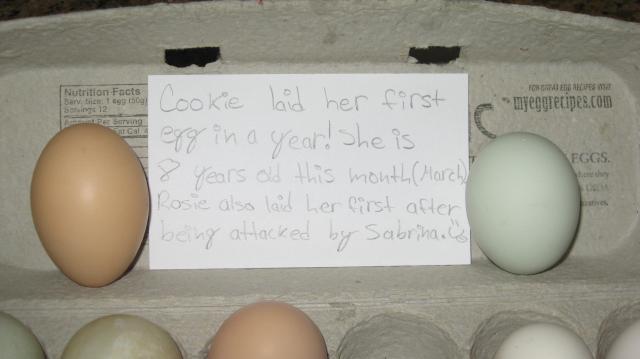 Nutrition Facts
Serv. Size: 1 egg (50g)
Servings 12
Amount Per Serving
FOR GREAT EGG RECIPES VISIT
myeggrecipes.com
EGGS.
Cookie laid her first
egg in a year! She is
8 years old this month (March)
Rosie also laid her first after
being attacked by Sabrina.